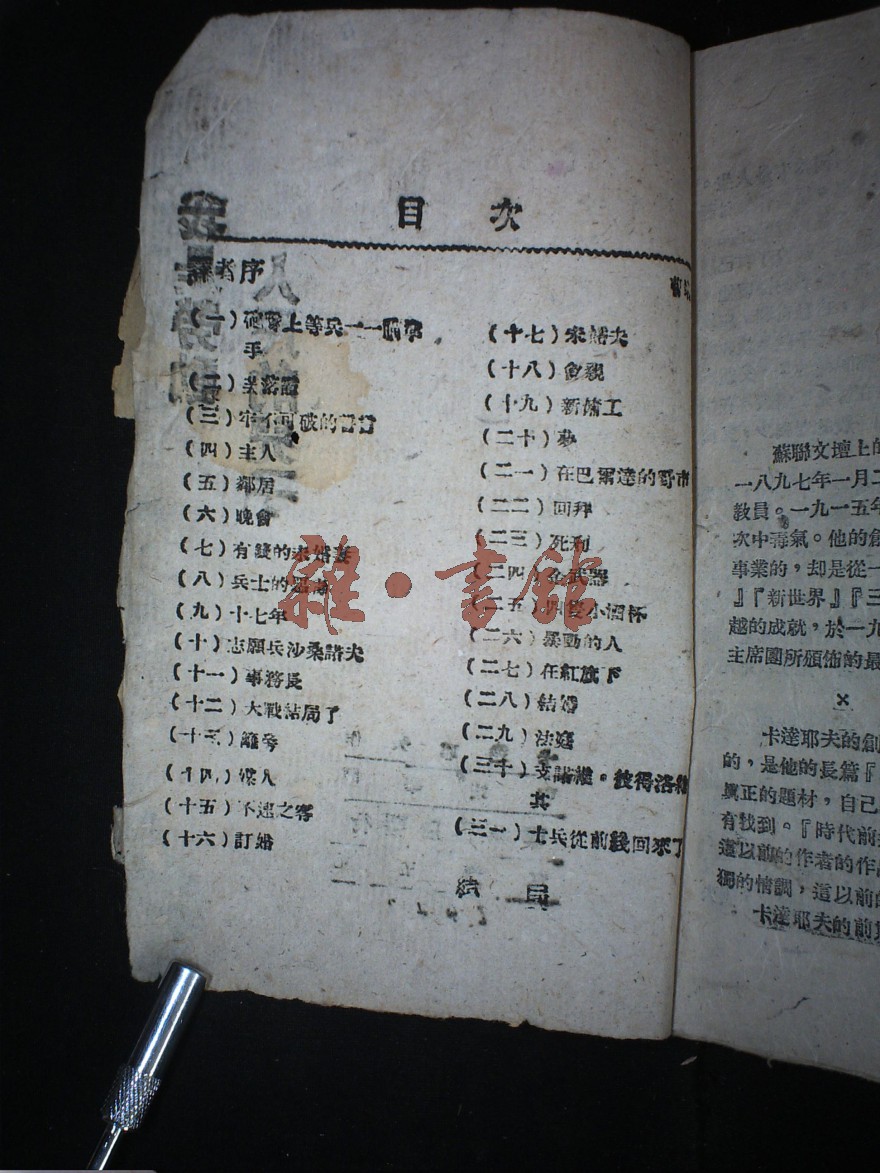 目 次
譯者序
(一)砲 上等兵——瞄準
手
(三)牢不可破的誓言
(四)主人
(五)鄰居
(六)晚會
(七)有錢的未婚妻
(八)兵士的
(九)十七年
(十)志願兵沙桑諾夫
(十一)事務長
(十二)大戰結局了
(十三)
(十四)媒人
(十五)不速之客
(十六)訂婚
(十七)宋諾夫
(十八)會親
(十九)新傭工
(二十)夢
(二一)在巴爾達的哥市
(二二)回拜
(二三)死刑
(二四)金武器
(二五)四隻小酒杯
(二六)暴動的人
(二七)在紅旗下
(二八)結婚
(二九)法庭
(三十)支諾維。彼得洛維
其
(三一)士兵從前綫回來了
結 局
雜·書館
蘇聯文壇上的
一八九七年一月二
教員。一九一五年
次中毒氣。他的創
事業的,却是從一
』『新世界』『三
越的成就,於一九
主席團所頒佈的最
×
卡達耶夫的創
的,是他的長篇『
真正的題材,自己
有找到。『時代前
這以前的作者的作品
獨的情調,這以前的
卡達耶夫的前